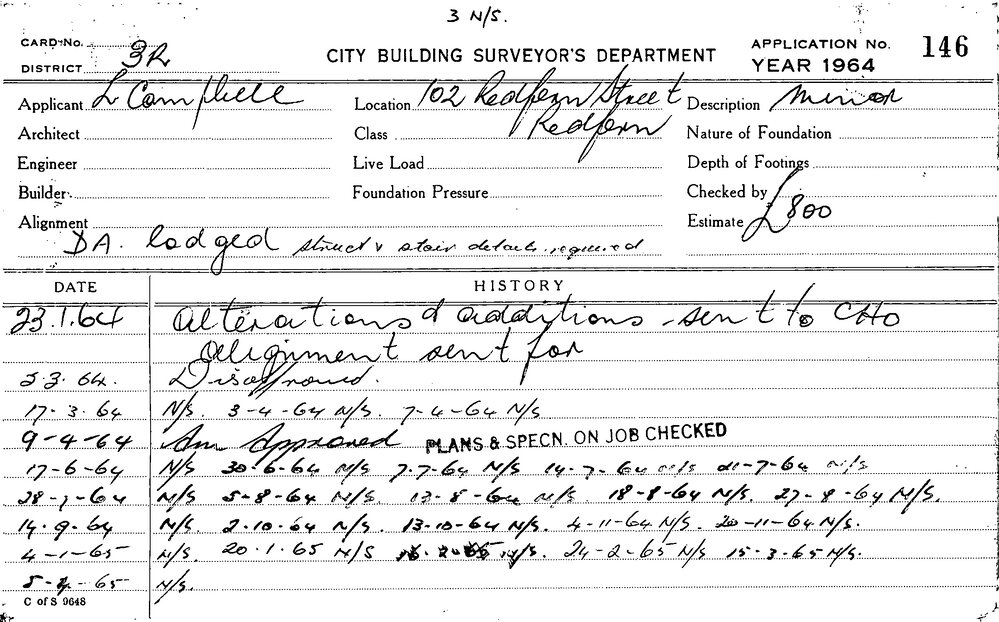 3 N/S.
CARD No.
DISTRICT 3R
CITY BUILDING SURVEYOR'S DEPARTMENT
APPLICATION No. 146
YEAR 1964
Applicant L Campbell Location 102 Redfern Street Redfern Description Minor
Architect Class Nature of Foundation
Engineer Live Load Depth of Footings
Builder Foundation Pressure Checked by
Alignment Estimate £800
DA. lodged struct & stair details required
DATE HISTORY
23.1.64 Alterations & additions - sent to CHO
Alignment sent for
5.3.64. Disapproved.
17-3-64 N/S. 3-4-64 N/S. 7-4-64 N/S
9-4-64 Am Approved PLANS & SPECN. ON JOB CHECKED
17-6-64 N/S 30-6-64 N/S 7.7-64 N/S 14-7-64 N/S 21-7-64 N/S
28-7-64 N/S 5-8-64 N/S. 13-8-64 N/S. 18-8-64 N/S. 27-8-64 N/S.
14.9-64 N/S. 2-10-64 N/S. 13-10-64 N/S. 4-11-64 N/S. 20-11-64 N/S.
4-1-65 N/S. 20.1.65 N/S N/S. 24-2-65 N/S 15-3-65 N/S.
65 N/S.
C of S 9648